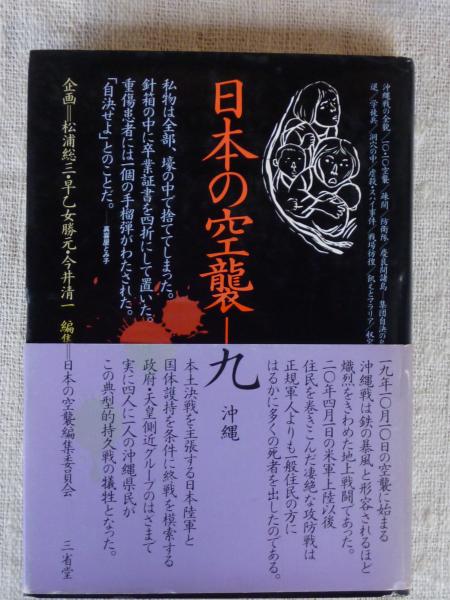 沖縄戦の全貌/一〇・一〇空襲/疎開、防衛隊/慶良間諸島―集団自決の
/学徒兵/洞穴の中/虐殺・スパイ事件/戦場彷徨/飢えとマラリア/収容
日本の空襲―九
沖縄
私物は全部、壕の中で捨ててしまった。
針箱の中に卒業証書を四折にして置いた。
重傷患者には一個の手榴弾がわたされた。
「自決せよ」とのことだ。――真喜屋とみ子
企画=松浦総三・早乙女勝元・今井清一 編集=日本の空襲編集委員会
三省堂
一九年一〇月一〇日の空襲に始まる
沖縄戦は鉄の暴風と形容されるほど
熾烈をきわめた地上戦闘であった。
二〇年四月一日の米軍上陸以後
住民を巻きこんだ凄絶な攻防戦は
正規軍人よりも一般住民の方に
はるかに多くの死者を出したのである。
本土決戦を主張する日本陸軍と
国体護持を条件に終戦を模索する
政府・天皇側近グループのはざまで
実に四人に一人の沖縄県民が
この典型的持久戦の犠牲となった。